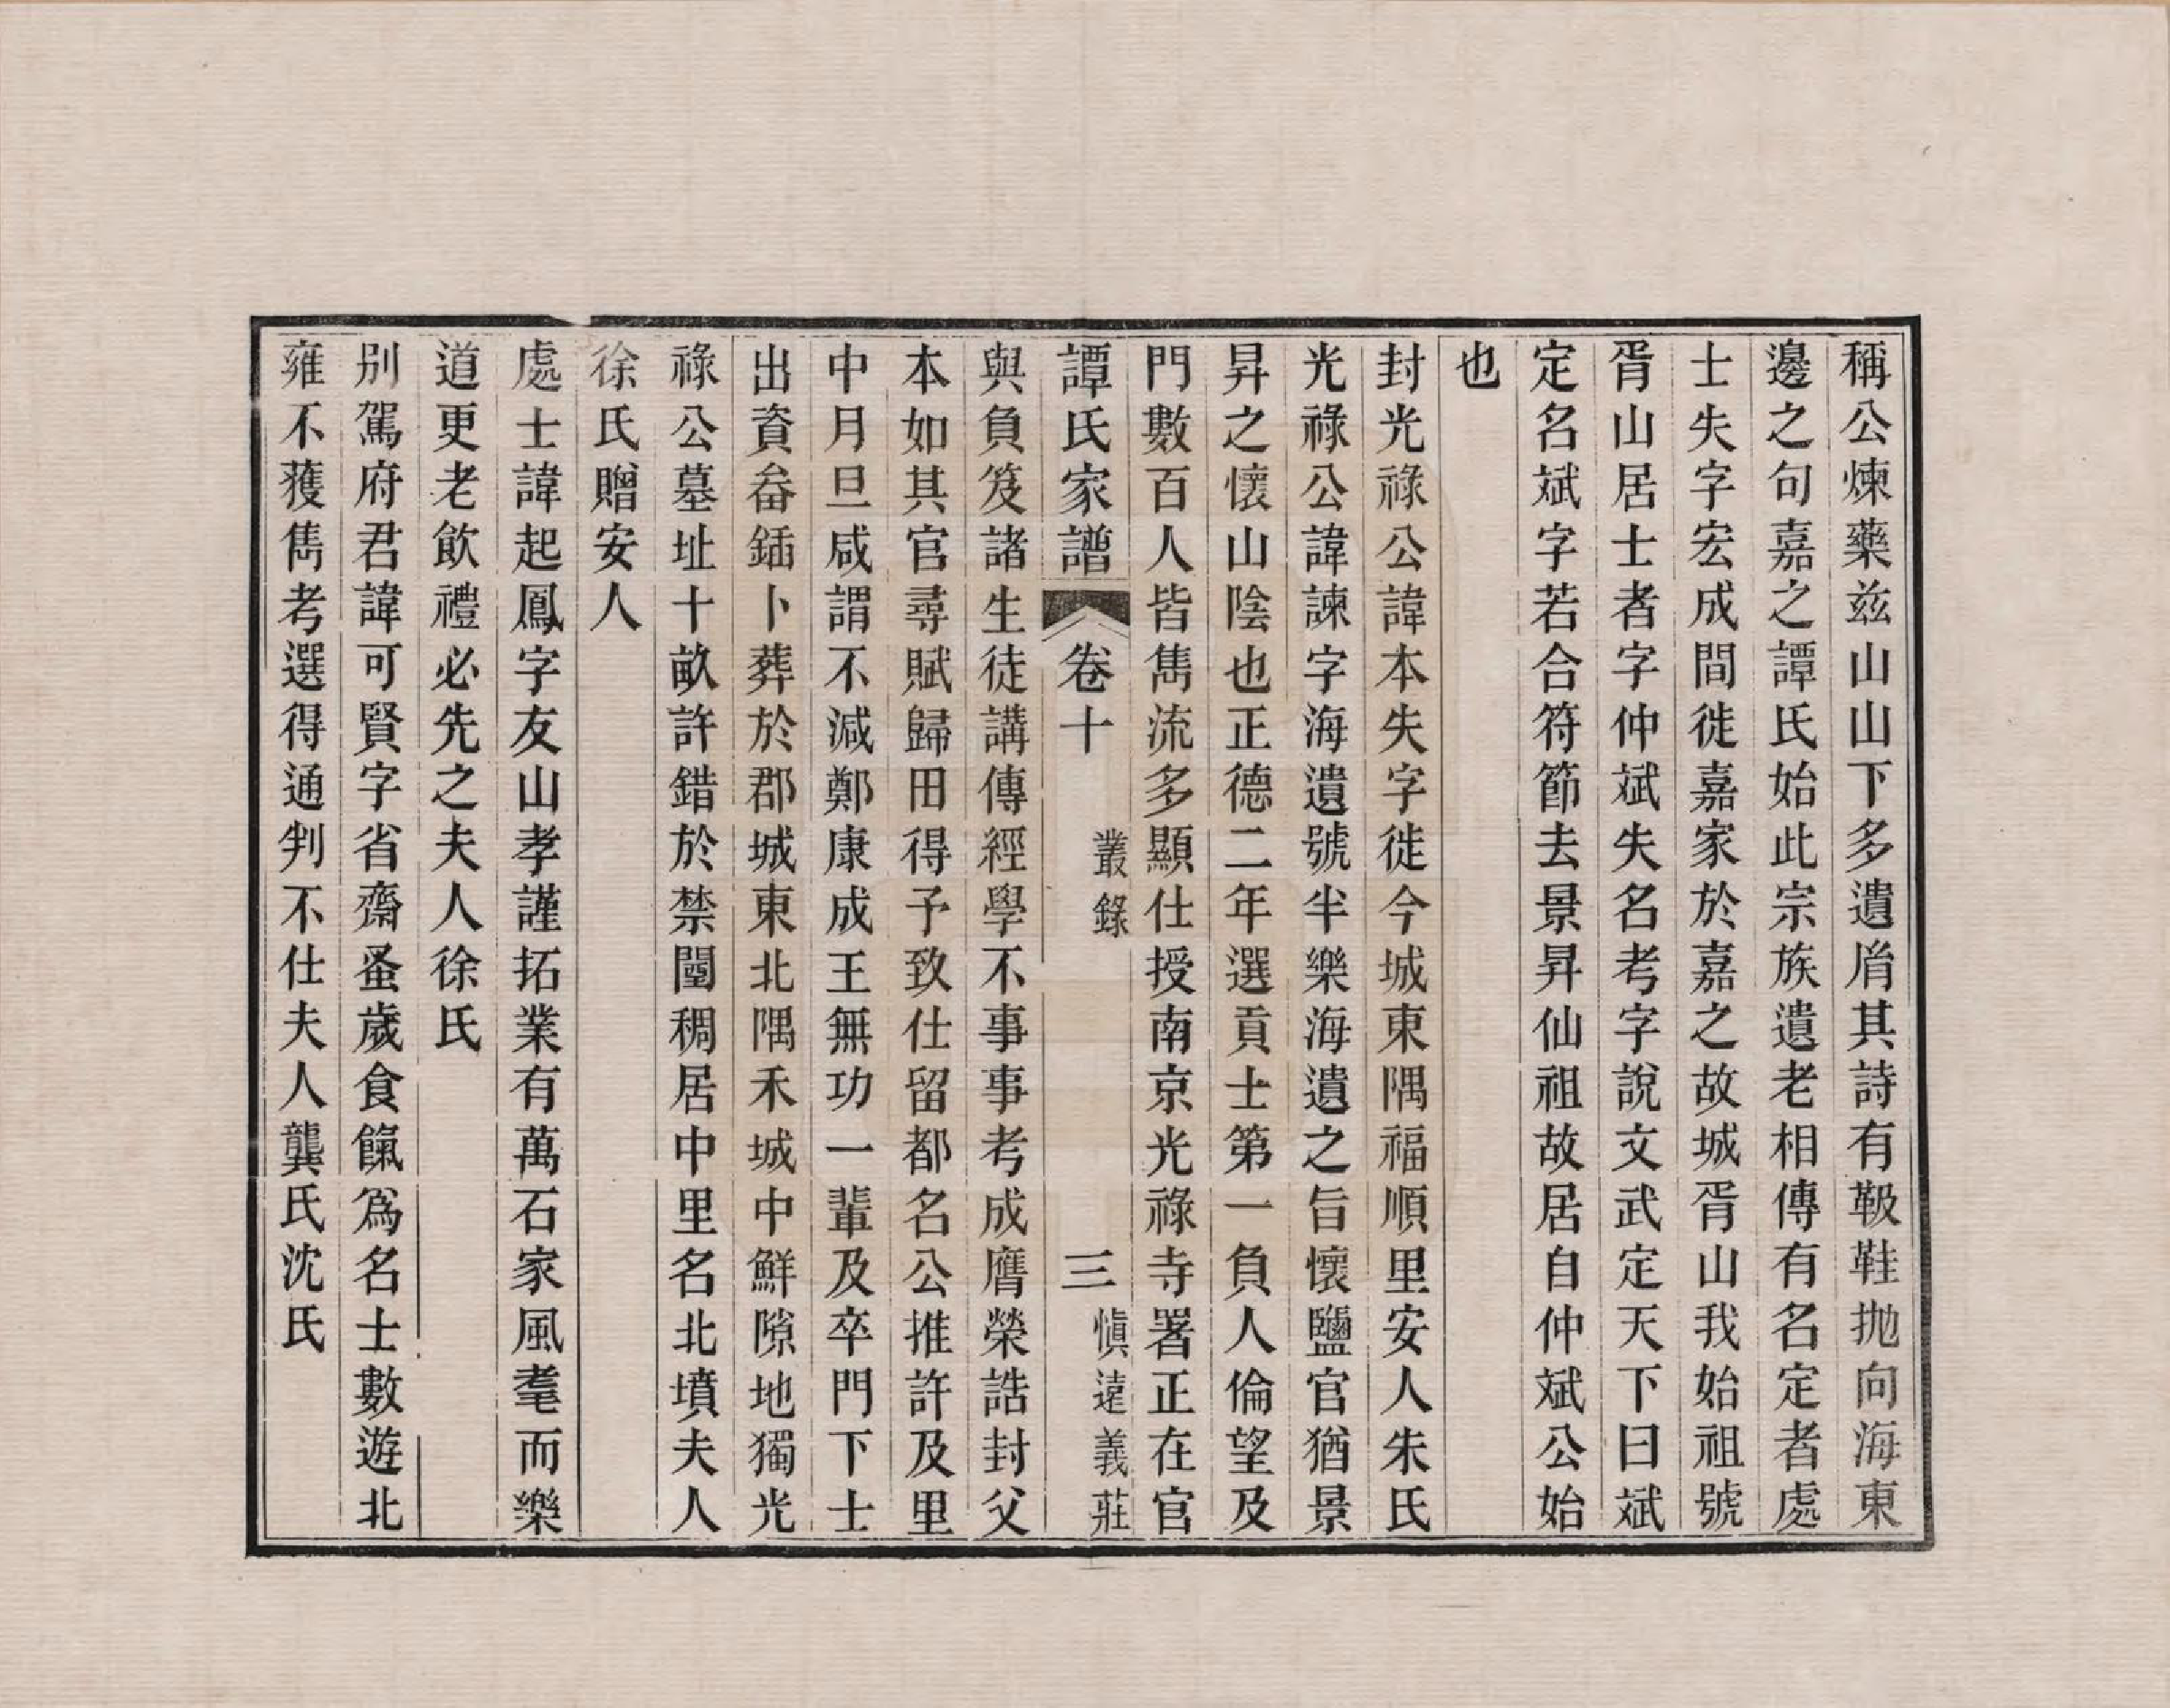 稱公煉藥茲山山下多遺屑其詩有靸鞋抛向海東
邊之句嘉之譚氏始此宗族遺老相傳有名定者處
士失字宏成間徙嘉家於嘉之故城胥山我始祖號
胥山居士者字仲斌失名考字說文武定天下曰斌
定名斌字若合符節去景昇仙祖故居自仲斌公始
也
封光祿公諱本失字徙今城東隅福順里安人朱氏
光祿公諱諫字海遺號半樂海遺之旨懷鹽官猶景
昇之懷山陰也正德二年選貢士第一負人倫望及
門數百人皆雋流多顯仕授南京光祿寺署正在官
譚氏家譜 卷十 叢錄 三 愼遠義莊
與負笈諸生徒講傳經學不事事考成膺榮誥封父
本如其官尋賦歸田得予致仕留都名公推許及里
中月旦咸謂不減鄭康成王無功一輩及卒門下士
出資畚鍤卜葬於郡城東北隅禾城中鮮隙地獨光
祿公墓址十畝許錯於禁闉稠居中里名北墳夫人
徐氏贈安人
處士諱起鳳字友山孝謹拓業有萬石家風耄而樂
道更老飲禮必先之夫人徐氏
別駕府君諱可賢字省齋蚤歲食餼爲名士數遊北
雍不獲雋考選得通判不仕夫人龔氏沈氏